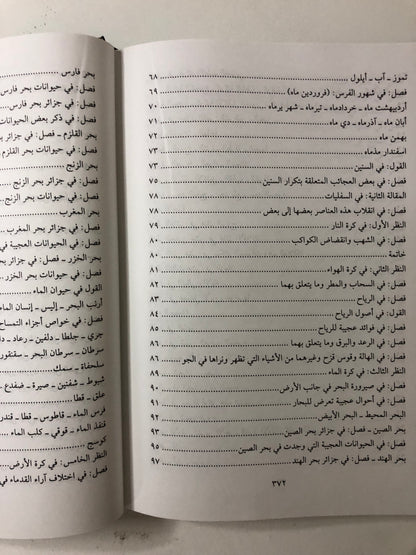 تموز ـ آب ـ أيلول ........ ٦٨
فصل: في شهور الفرس: (فروردين ماه) ........ ٦٩
أرديبهشت ماه ـ خردادماه ـ تيرماه ـ شهر يرماه ........ ٧٠
أبان ماه ـ آذرماه ـ دي ماه ........ ٧١
بهمن ماه ........ ٧٢
اسفندار مذماه ........ ٧٣
القول: في السنين ........ ٧٣
فصل: في بعض العجائب المتعلقة بتكرار السنين ........ ٧٥
المقالة الثانية: في السفليات ........ ٧٨
فصل: في انقلاب هذه العناصر بعضها إلى بعض ........ ٧٨
النظر الأول: في كرة النار ........ ٧٩
فصل: في الشهب وانقضاض الكواكب ........ ٨٠
خاتمة ........ ٨٠
النظر الثاني: في كرة الهواء ........ ٨١
فصل: في السحاب والمطر وما يتعلق بهما ........ ٨٢
فصل: في الرياح ........ ٨٣
القول: في أصول الرياح ........ ٨٤
فصل: في فوائد عجيبة للرياح ........ ٨٥
فصل: في الرعد والبرق وما يتعلق بهما ........ ٨٦
فصل: في الهالة وقوس قزح وغيرهما من الأشياء التي تظهر ونراها في الجو ........ ٨٦
النظر الثالث: في كرة الماء ........ ٨٩
فصل: في صيرورة البحر في جانب الأرض ........ ٩٠
فصل: في أحوال عجيبة تعرض للبحار ........ ٩١
البحر المحيط ـ البحر الأبيض ........ ٩٢
بحر الصين ـ فصل: في جزائر بحر الصين ........ ٩٣
فصل: في الحيوانات العجيبة التي وجدت في بحر الصين ........ ٩٥
بحر الهند ـ فصل: في جزائر بحر الهند ........ ٩٧
٣٧٢
بحر فارس ........
فصل: في حيوانات بحر فارس ........
فصل: في جزائر بحر فارس ........
فصل: في ذكر بعض الحيوانات
بحر القلزم ـ فصل: في جزائر بح
فصل: في حيوانات بحر القلزم
بحر الزنج ........
فصل: في جزائر بحر الزنج ........
فصل: في حيوانات بحر الزنج ........
بحر المغرب ........
فصل: في جزائر بحر المغرب ........
فصل: في الحيوانات العجيبة في
بحر الخزر ـ فصل: في جزائر بح
فصل: في حيوانات بحر الخزر ........
القول في حيوان الماء ........
أرنب البحر ـ إليس ـ إنسان الماء
فصل: في خواص أجزاء التمساح
جري ـ جلطا ـ دلفين ـ رعاد ـ
سرطان ـ سرطان البحر ـ سقنقور
سلحفاة ـ سمك ........
شبوط ـ شفنين ـ صيرة ـ ضفدع
علق ـ قطا ........
فرس الماء ـ قاطوس ـ قطا ـ قندر
قنفذ الماء ـ قوقي ـ كلب الماء ـ
كوسج ........
النظر الخامس: في كرة الأرض
فصل: في اختلاف آراء القدماء في